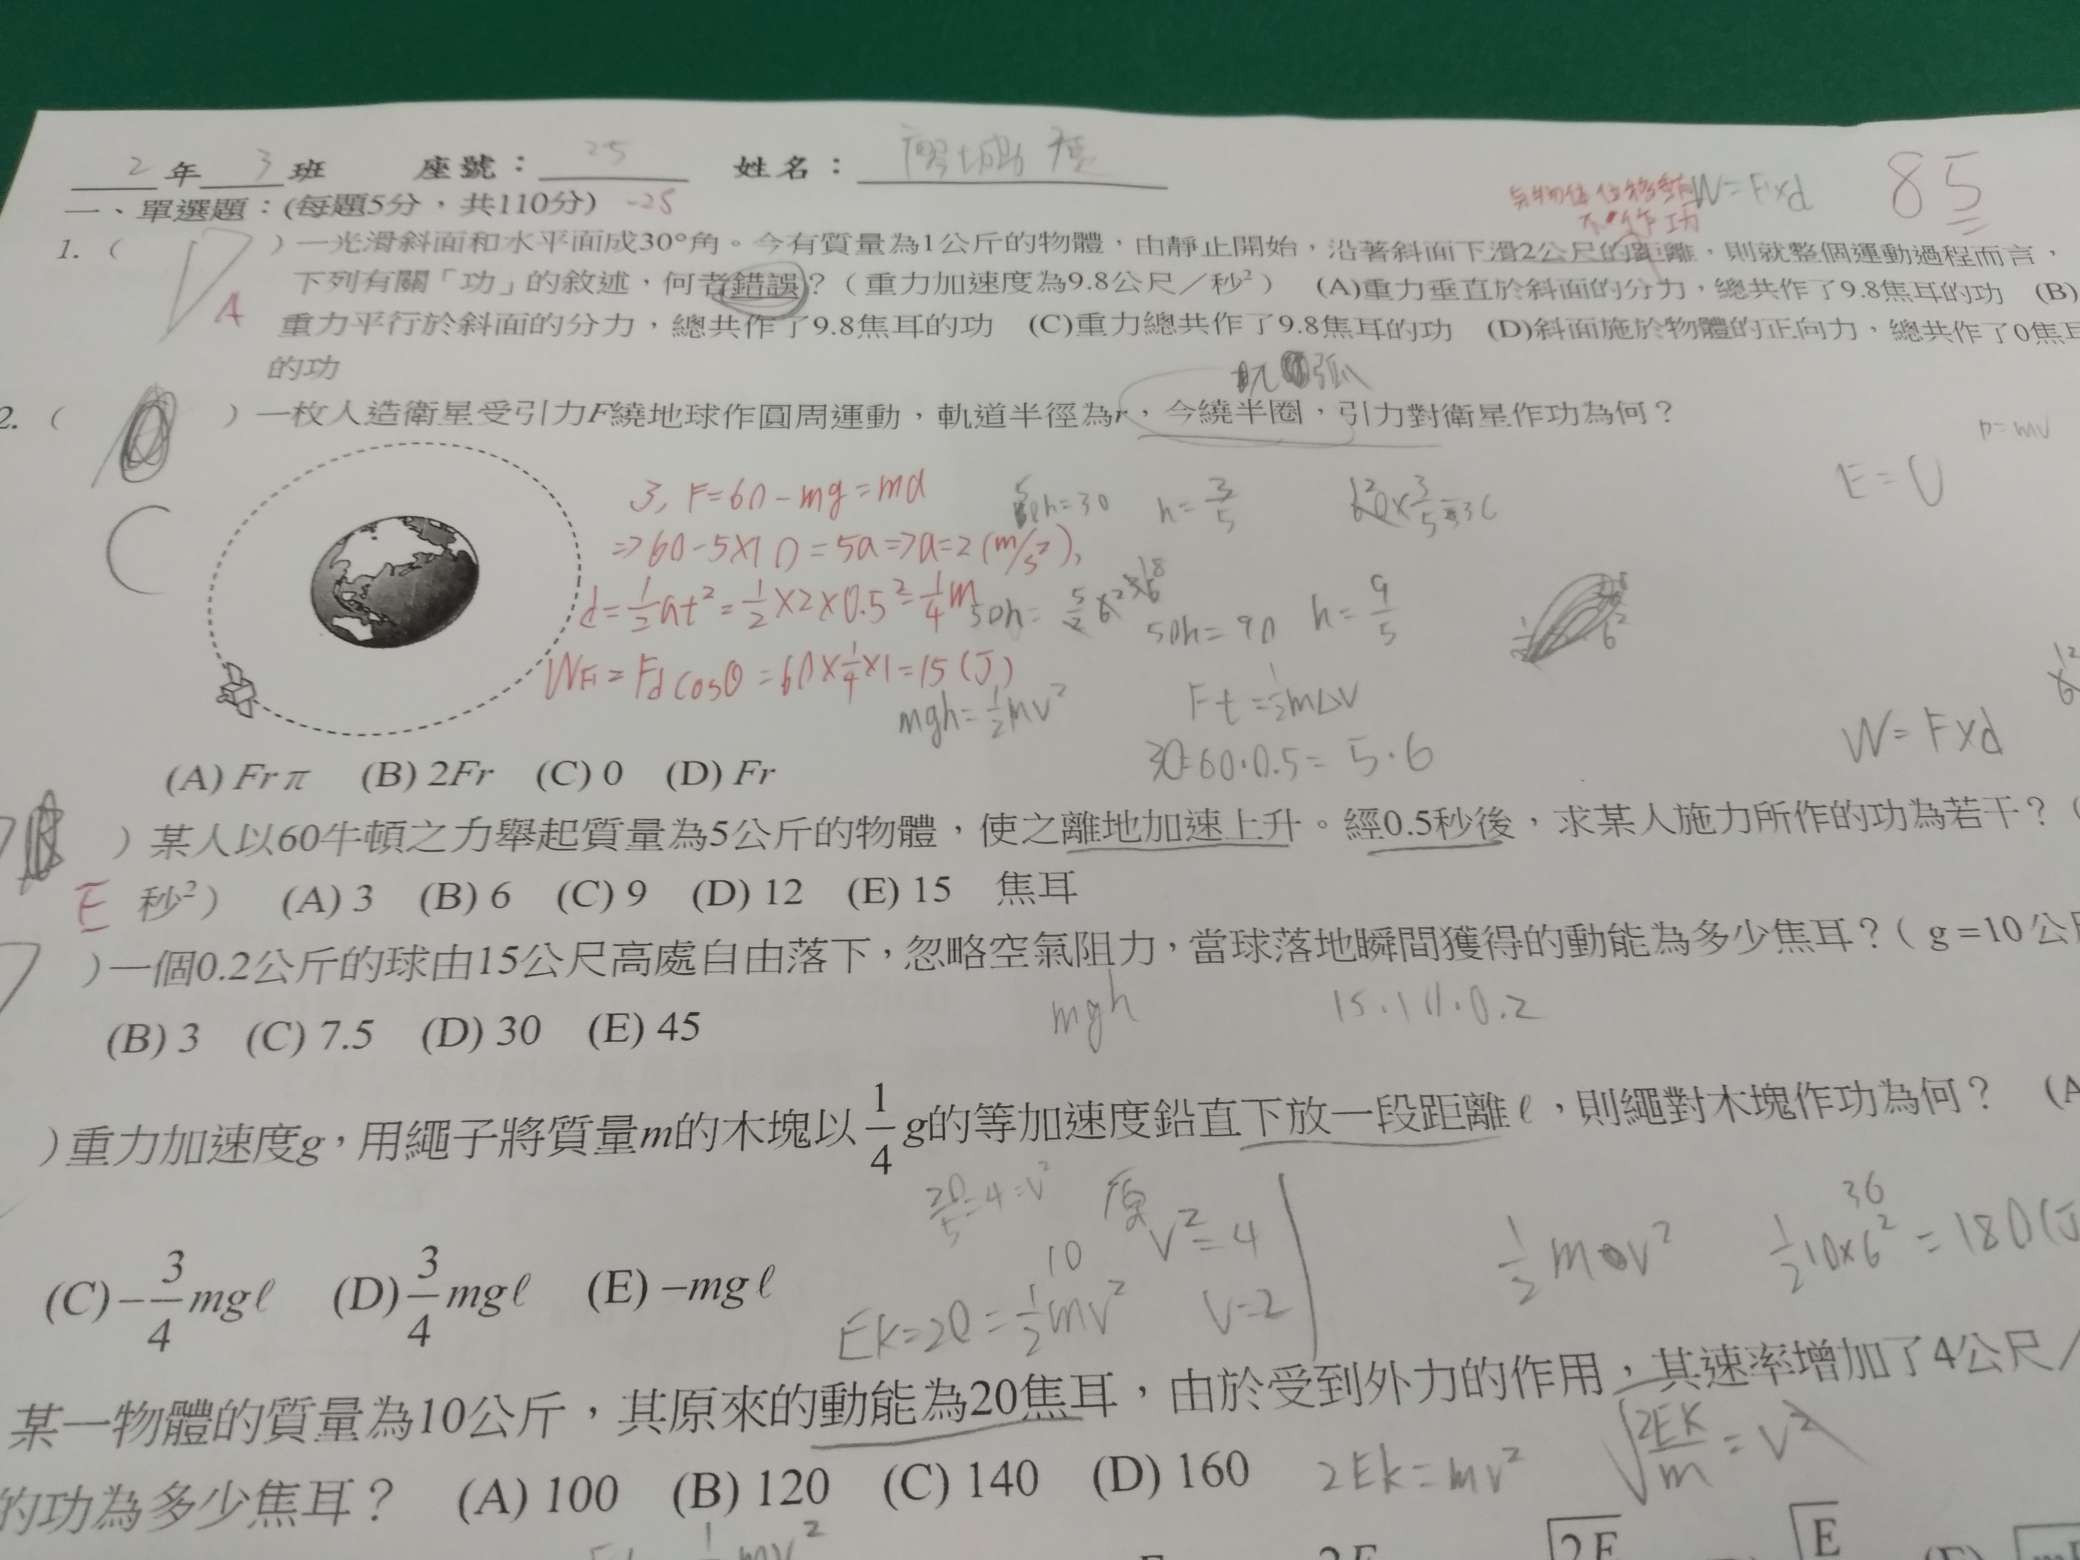 2 年 3 班 座號： 25 姓名：
W=F×d 85
一、單選題：(每題5分，共110分) -25
不作功
1. （ ）一光滑斜面和水平面成30°角。今有質量為1公斤的物體，由靜止開始，沿著斜面下滑2公尺的距離，則就整個運動過程而言，
下列有關「功」的敘述，何者錯誤？（重力加速度為9.8公尺／秒²） (A)重力垂直於斜面的分力，總共作了9.8焦耳的功 (B)
A 重力平行於斜面的分力，總共作了9.8焦耳的功 (C)重力總共作了9.8焦耳的功 (D)斜面施於物體的正向力，總共作了0焦耳
的功
弧
2. （ ）一枚人造衛星受引力F繞地球作圓周運動，軌道半徑為r，今繞半圈，引力對衛星作功為何？
P=mv
E=U
C
3, F=60-mg=ma
h=30 h=3/5 60×3/5=36
=>60-5×10=5a=>a=2(m/s²),
d=½at²=½×2×0.5²=¼m
50h=90 h=9/5
WF=Fd cosθ=60×¼×1=15(J)
mgh=½mv² Ft=½mΔv
30=60·0.5=5·6
W=F×d
(A) Frπ (B) 2Fr (C) 0 (D) Fr
）某人以60牛頓之力舉起質量為5公斤的物體，使之離地加速上升。經0.5秒後，求某人施力所作的功為若干？（
E 秒²） (A) 3 (B) 6 (C) 9 (D) 12 (E) 15 焦耳
）一個0.2公斤的球由15公尺高處自由落下，忽略空氣阻力，當球落地瞬間獲得的動能為多少焦耳？（ g =10公尺
mgh 15·10·0.2
(B) 3 (C) 7.5 (D) 30 (E) 45
）重力加速度g，用繩子將質量m的木塊以1/4 g的等加速度鉛直下放一段距離ℓ，則繩對木塊作功為何？ (A
20/5=4=v² 原 v²=4
½mv² ½10×6²=180(J
36
(C) −3/4 mgℓ (D) 3/4 mgℓ (E) −mgℓ
10
Ek=20=½mv² v=2
某一物體的質量為10公斤，其原來的動能為20焦耳，由於受到外力的作用，其速率增加了4公尺／
的功為多少焦耳？ (A) 100 (B) 120 (C) 140 (D) 160
2Ek=mv² √2Ek/m=v²
½mv²